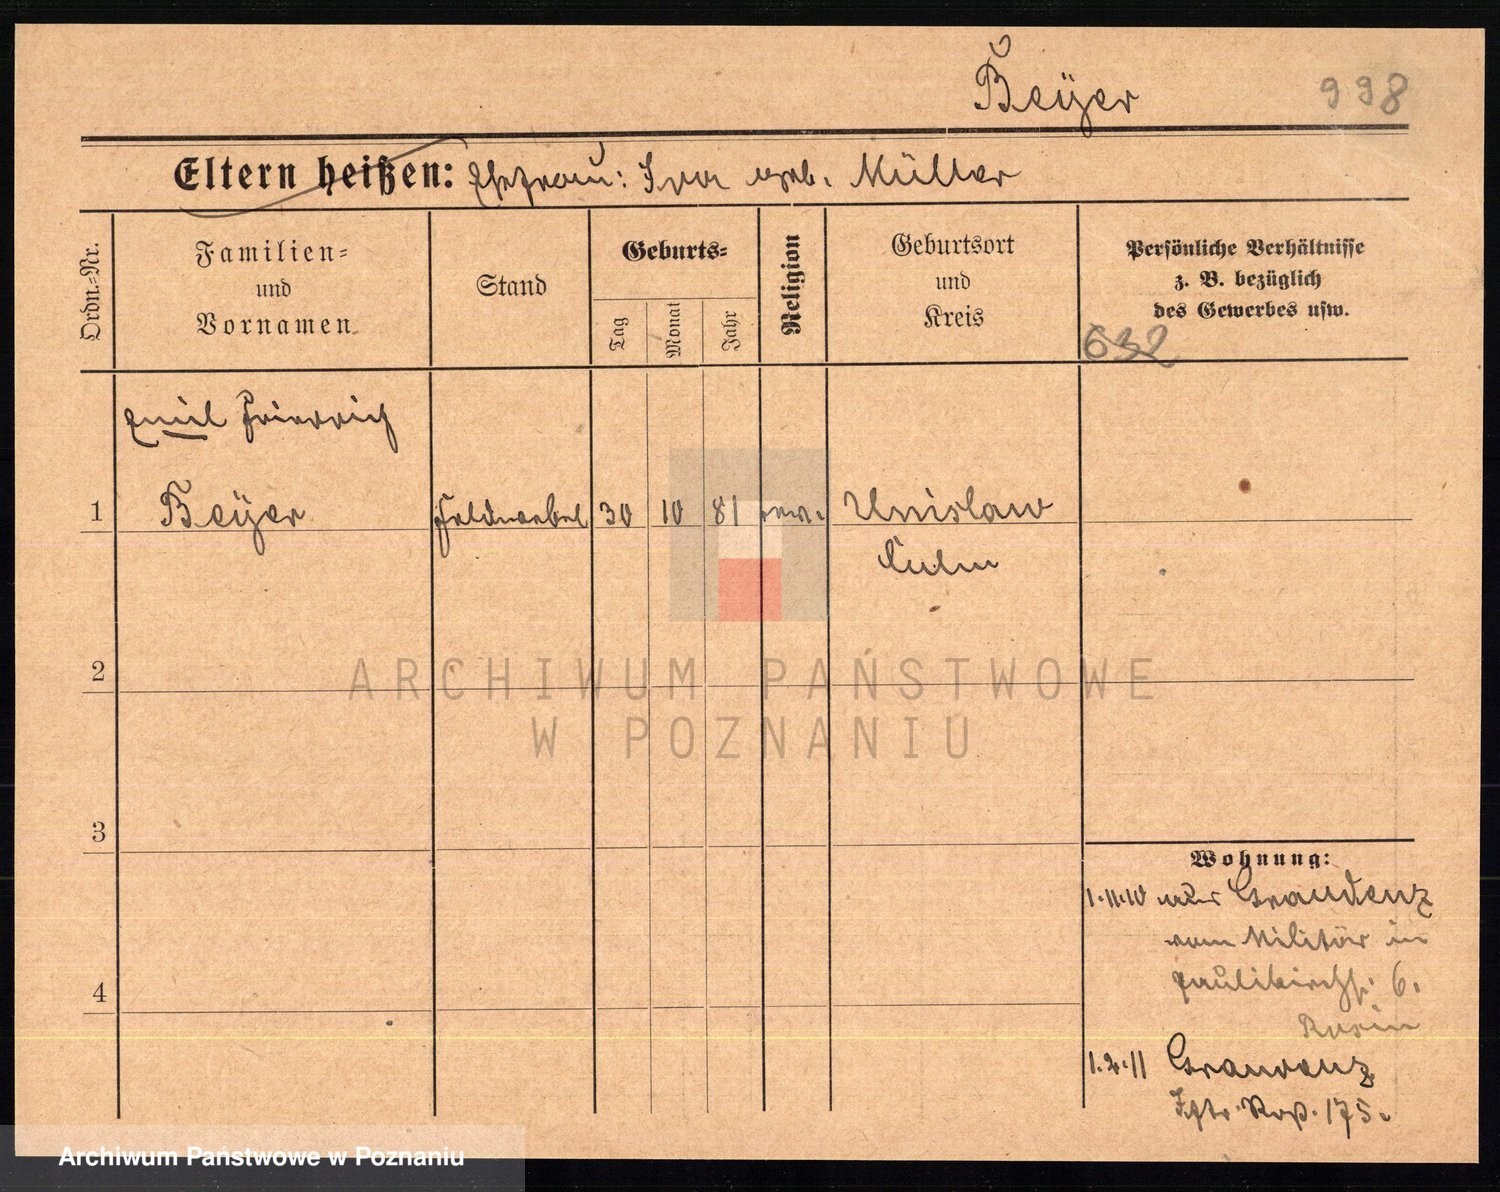 Beÿer
998
Eltern heißen: Ehefrau: Iva geb. Müller
Ordn.-Nr.
Familien-
und
Vornamen
Stand
Geburts-
Tag
Monat
Jahr
Religion
Geburtsort
und
Kreis
Persönliche Verhältnisse
z. B. bezüglich
des Gewerbes usw.
632
Emil Friedrich
1 Beÿer Feldwebel 30 10 81 ev. Unislaw
Culm
2
3
4
Wohnung:
1.11.10 aus Graudenz
vom Militär in
Paulikirchstr. 6.
1.2.11 Graudenz
Inftr. Rgt. 175.
ARCHIWUM PAŃSTWOWE
W POZNANIU
Archiwum Państwowe w Poznaniu